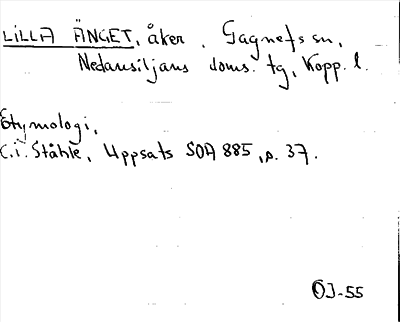 LILLA ÄNGET, åker. Gagnefs sn,
Nedansiljans doms. tg, Kopp. l.
Etymologi,
C.I. Ståhle, Uppsats SOA 885, s. 37.
ÖJ-55